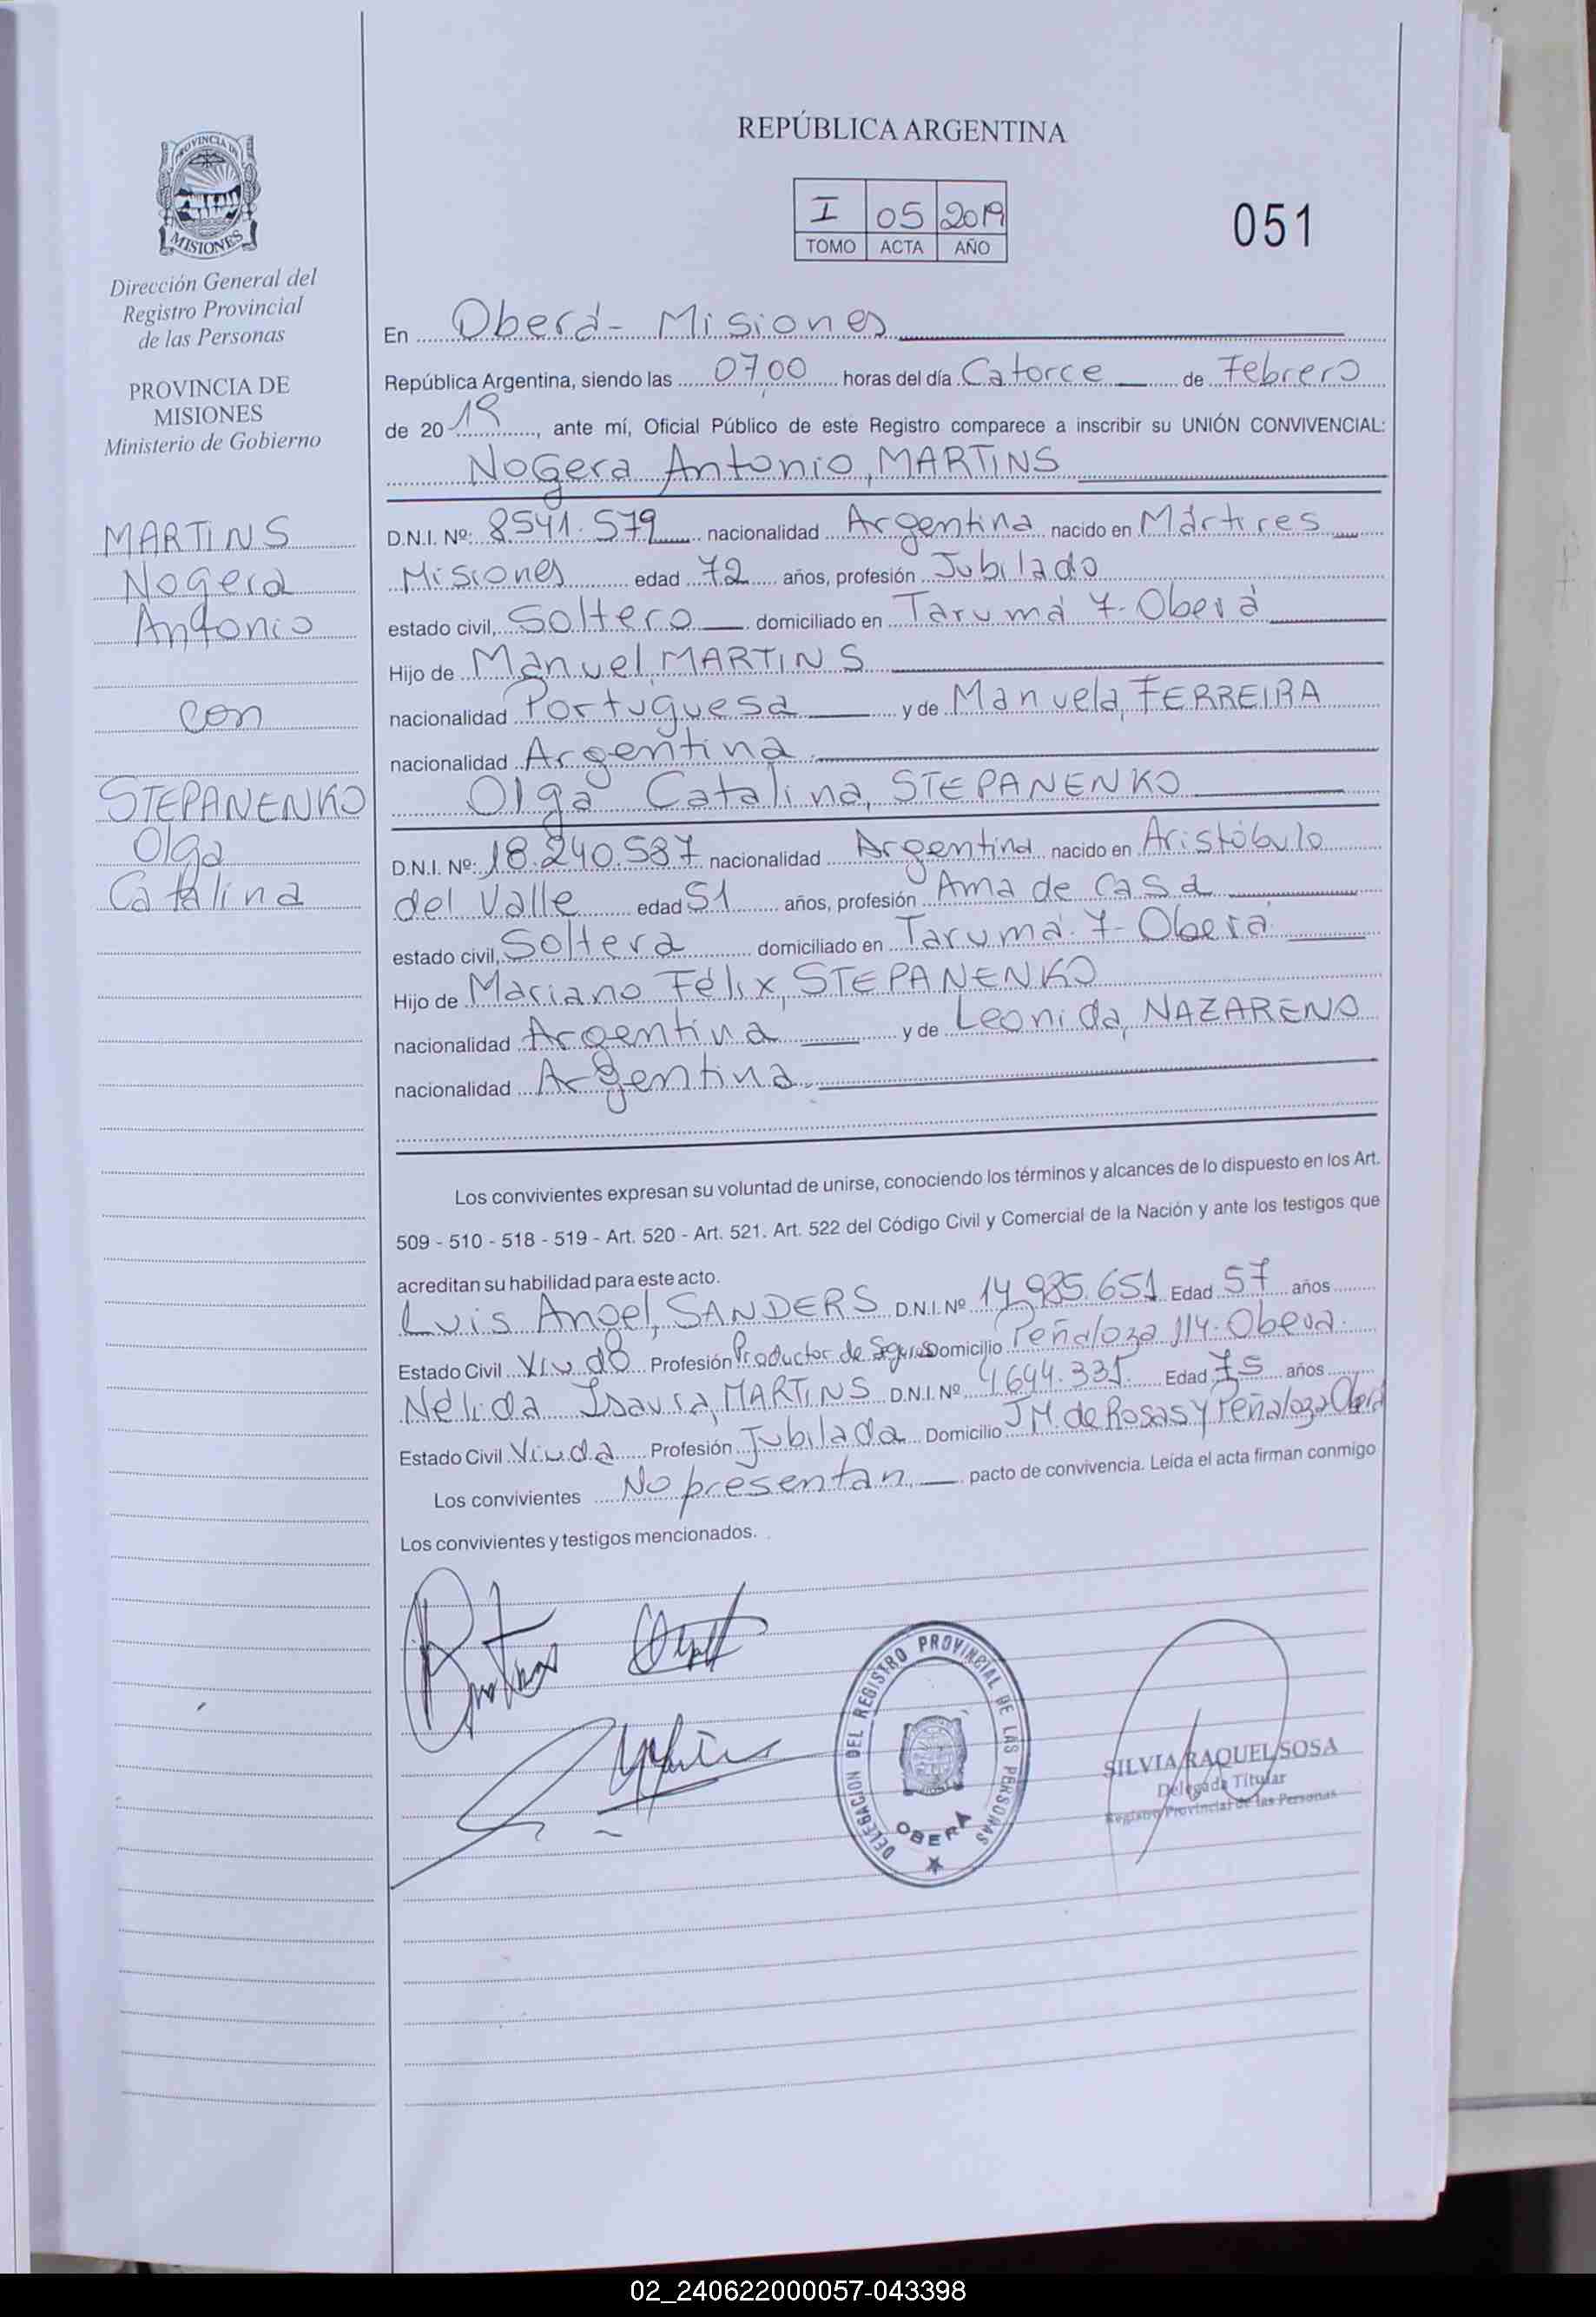 REPÚBLICA ARGENTINA
I 05 2019
TOMO ACTA AÑO
051
PROVINCIA DE
MISIONES
Dirección General del
Registro Provincial
de las Personas
PROVINCIA DE
MISIONES
Ministerio de Gobierno
MARTINS
Nogera
Antonio
con
STEPANENKO
Olga
Catalina
En Oberá - Misiones
República Argentina, siendo las 07,00 horas del día Catorce de Febrero
de 2019, ante mí, Oficial Público de este Registro comparece a inscribir su UNIÓN CONVIVENCIAL:
Nogera Antonio, MARTINS
D.N.I. Nº: 8541.579 nacionalidad Argentina nacido en Mártires
Misiones edad 72 años, profesión Jubilado
estado civil, Soltero domiciliado en Tarumá 7- Oberá
Hijo de Manuel, MARTINS
nacionalidad Portuguesa y de Manuela, FERREIRA
nacionalidad Argentina
Olga Catalina, STEPANENKO
D.N.I. Nº: 18.240.587 nacionalidad Argentina nacido en Aristóbulo
del Valle edad 51 años, profesión Ama de casa
estado civil, Soltera domiciliado en Tarumá 7- Oberá
Hijo de Mariano Félix, STEPANENKO
nacionalidad Argentina y de Leonida, NAZARENO
nacionalidad Argentina
Los convivientes expresan su voluntad de unirse, conociendo los términos y alcances de lo dispuesto en los Art.
509 - 510 - 518 - 519 - Art. 520 - Art. 521. Art. 522 del Código Civil y Comercial de la Nación y ante los testigos que
acreditan su habilidad para este acto.
Luis Angel, SANDERS D.N.I. Nº 14.985.651 Edad 57 años
Estado Civil Viudo Profesión Productor de Seguros Domicilio Peñaloza 114. Oberá.
Nélida Isaura, MARTINS D.N.I. Nº 4.644.335. Edad 75 años
Estado Civil Viuda Profesión Jubilada Domicilio J.M. de Rosas y Peñaloza Oberá
Los convivientes No presentan pacto de convivencia. Leída el acta firman conmigo
Los convivientes y testigos mencionados.
DELEGACION DEL REGISTRO PROVINCIAL DE LAS PERSONAS
OBERÁ
SILVIA RAQUEL SOSA
Delegada Titular
Registro Provincial de las Personas
02_240622000057-043398